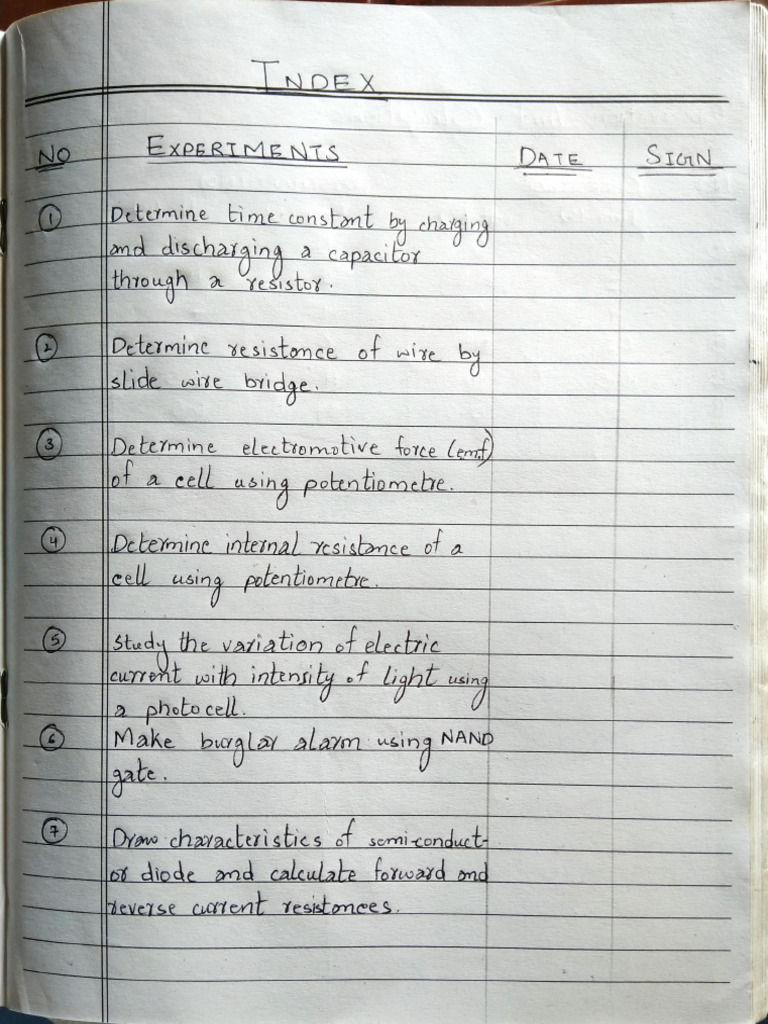 INDEX
NO EXPERIMENTS DATE SIGN
1 Determine time constant by charging
and discharging a capacitor
through a resistor.
2 Determine resistance of wire by
slide wire bridge.
3 Determine electromotive force (emf)
of a cell using potentiometre.
4 Determine internal resistance of a
cell using potentiometre.
5 Study the variation of electric
current with intensity of light using
a photocell.
6 Make burglar alarm using NAND
gate.
7 Draw characteristics of semi-conduct-
or diode and calculate forward and
reverse current resistances.